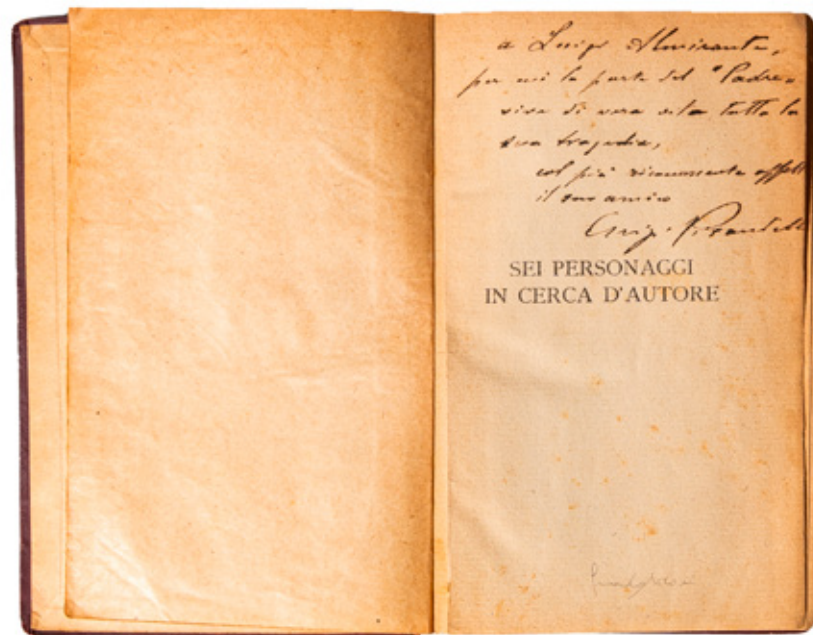 a Luigi Almirante,
per cui la parte del "Padre"
vive di vera vita tutta la
sua tragedia,
col più riconoscente affetto
il suo amico
Luigi Pirandello
SEI PERSONAGGI
IN CERCA D'AUTORE